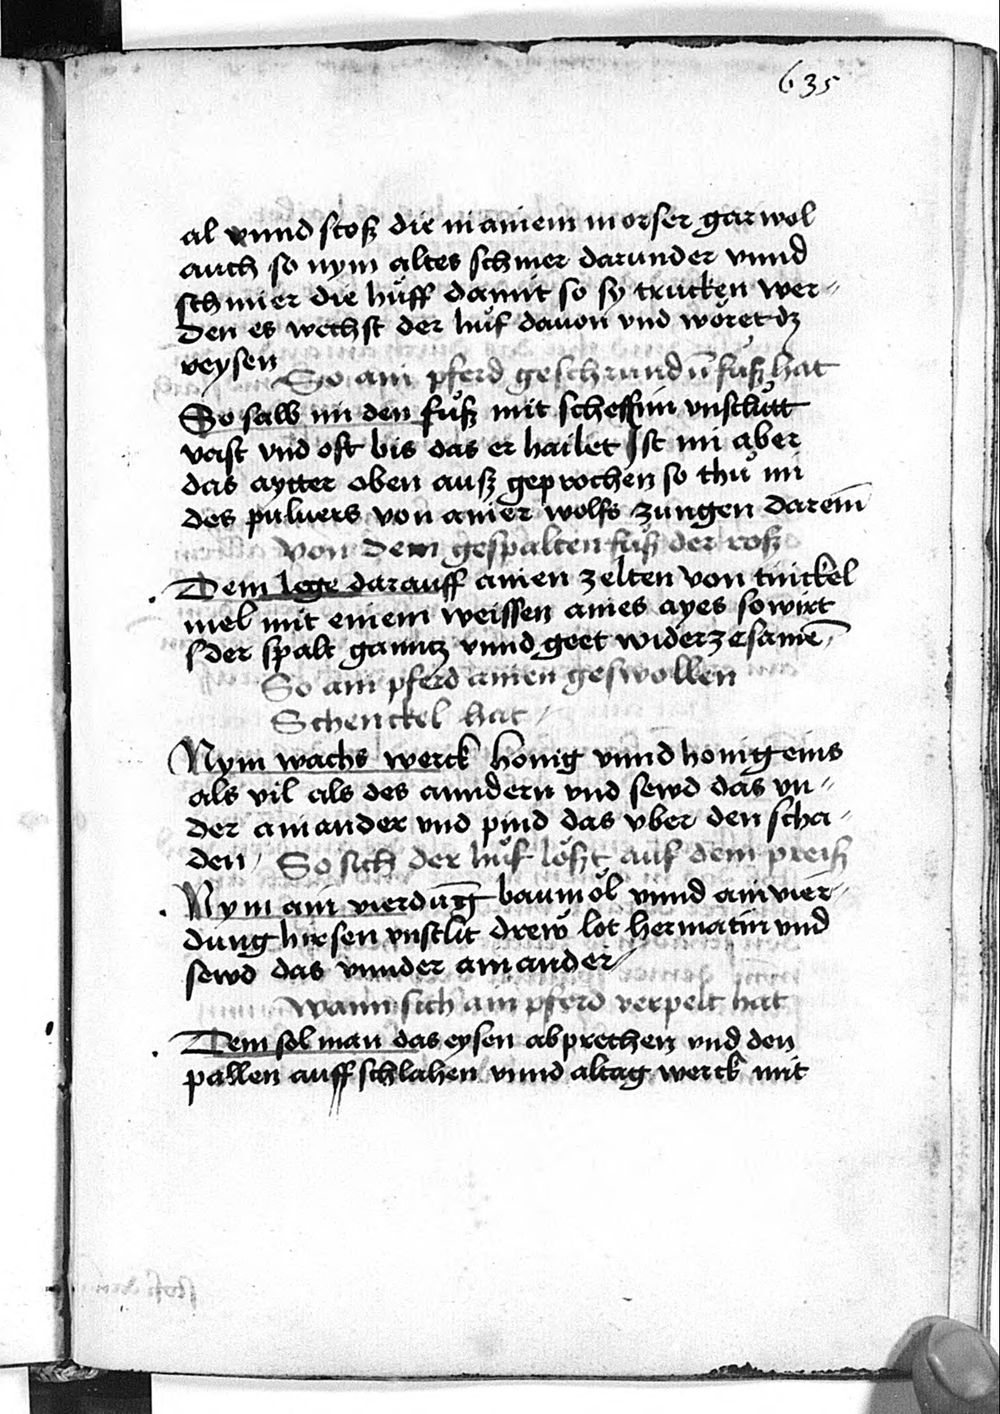 635
al vnnd stosz die in ainem morser gar wol
auch so nym altes schmer darunder vnnd
schmier die hüff damit so sy trucken wer-
den es wechst der huf dauon vnd wöret dz
reysen
So ain pferd geschrunden fusz hat
So salb im den fůsz mit scheffim vnschlitt
vast vnd oft bis das er hailet Ist im aber
das aytter oben ausz geprochen so thů im
des puluers von ainer wolfs zungen darein
Von dem gespalten fusz der rosz
Dem lege darauff ainen zelten von tinckel
mel mit einem weissen aines ayes so wirt
der spalt ganntz vnnd geet wider zesamē
So ain pferd ainen geswollen
Schenckel hat
Nym wachs werck honig vnnd honig eins
als vil als des anndern vnd sewd das vn-
der ainander vnd pind das vber den scha-
den So sich der hůf löszt auf dem preisz
Nym ain vierdūg baumöl vnnd ain vier-
dung hirsen vnschlit drew lot hermatin vnd
sewd das vnnder ainander
Wann sich ain pferd verpelt hat
Dem sol man das eysen abprechen vnd den
pallen auff schlahen vnnd altag werck mit